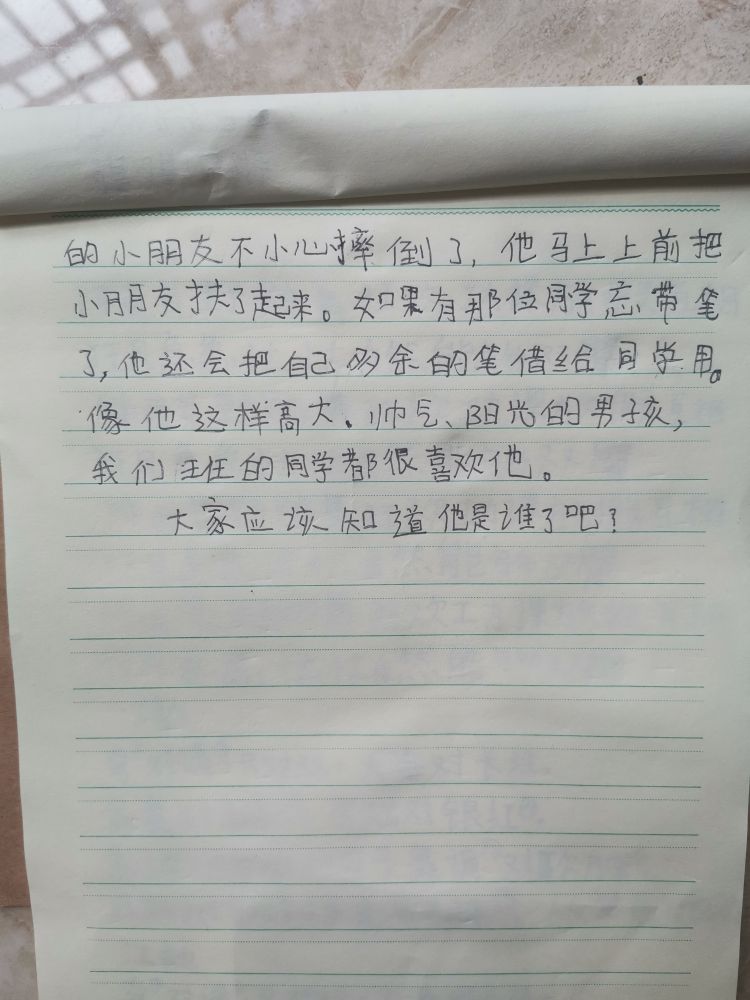 的小朋友不小心摔倒了，他马上上前把
小朋友扶了起来。如果有那位同学忘带笔
了，他还会把自己多余的笔借给同学用。
像他这样高大、帅气、阳光的男孩，
我们班的同学都很喜欢他。
大家应该知道他是谁了吧？